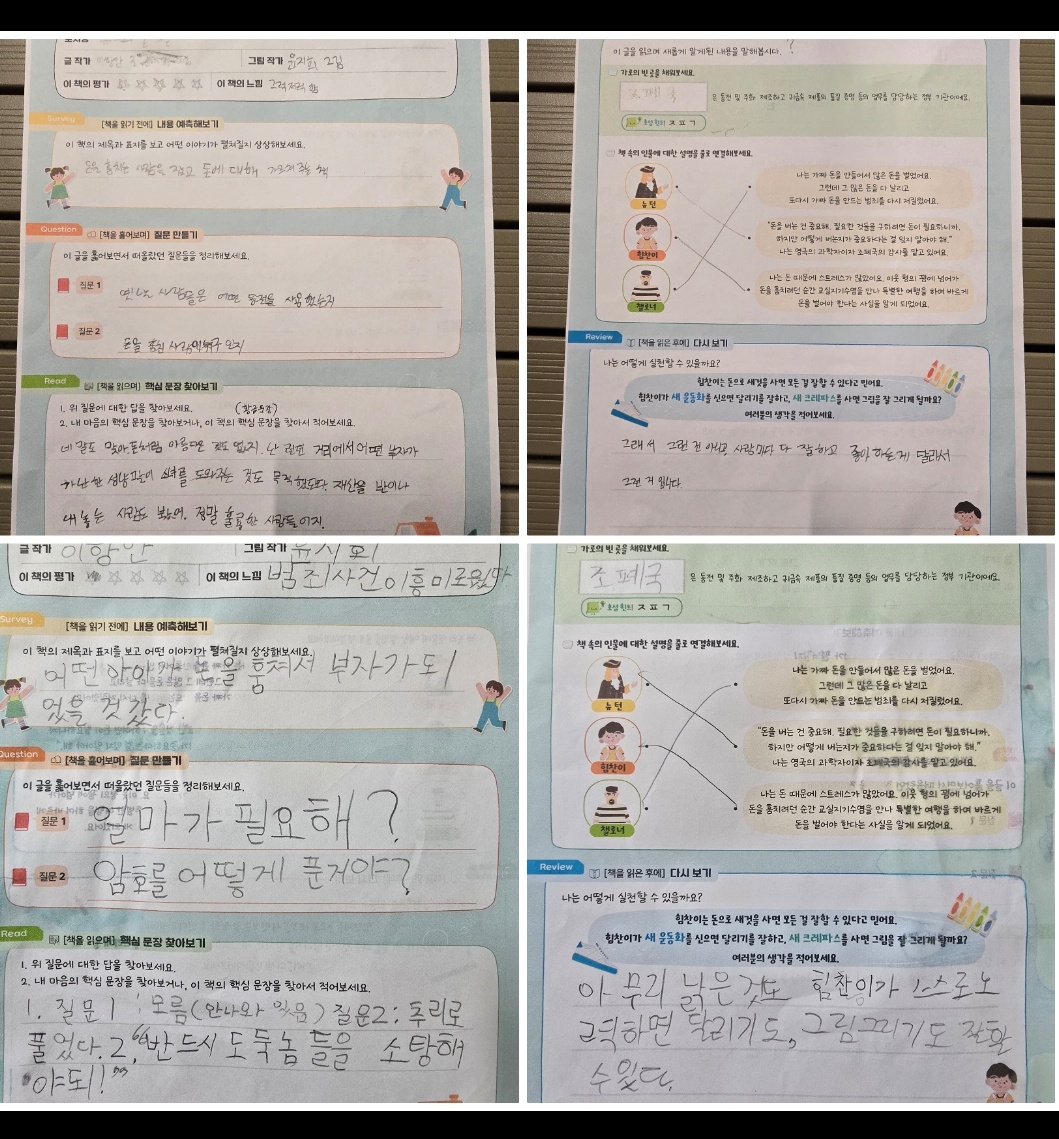 글 작가
그림 작가 윤지회 그림
이 책의 평가 ☆ ☆ ☆ ☆ ☆ 이 책의 느낌 그럭저럭 함
Survey
[책을 읽기 전에] 내용 예측해보기
이 책의 제목과 표지를 보고 어떤 이야기가 펼쳐질지 상상해보세요.
돈을 훔치는 사람을 잡고 돈에 대해 가르쳐 주는 책
Question
[책을 훑어보며] 질문 만들기
이 글을 훑어보면서 떠올랐던 질문들을 정리해보세요.
질문 1
옛날 사람들은 어떤 동전을 사용했는지
질문 2
돈을 훔친 사람이 누구인지
Read
[책을 읽으며] 핵심 문장 찾아보기
1. 위 질문에 대한 답을 찾아보세요.
2. 내 마음의 핵심 문장을 찾아보거나, 이 책의 핵심 문장을 찾아서 적어보세요.
네 말도 맞아. 돈처럼 아름다운 것도 없지. 난 런던 거리에서 어떤 부자가
가난한 성냥팔이 소녀를 도와주는 것도 목격했단다. 재산을 반이나
내놓는 사람도 봤어. 정말 훌륭한 사람들이지.
이 글을 읽으며 새롭게 알게된 내용을 말해봅시다.
가로의 빈 곳을 채워보세요.
조폐국 은 동전 및 주화 제조하고 귀금속 제품의 품질 증명 등의 업무를 담당하는 정부 기관이에요.
초성 힌트 ㅈ ㅍ ㄱ
책 속의 인물에 대한 설명을 줄로 연결해보세요.
뉴턴
나는 가짜 돈을 만들어서 많은 돈을 벌었어요.
그런데 그 많은 돈을 다 날리고
또다시 가짜 돈을 만드는 범죄를 다시 저질렀어요.
힘찬이
"돈을 버는 건 중요해. 필요한 것들을 구하려면 돈이 필요하니까.
하지만 어떻게 버는지가 중요하다는 걸 잊지 말아야 해."
나는 영국의 과학자이자 조폐국의 감사를 맡고 있어요.
챌로너
나는 돈 때문에 스트레스가 많았어요. 이웃 형의 꾐에 넘어가
돈을 훔치려던 순간 교실지기수염을 만나 특별한 여행을 하며 바르게
돈을 벌어야 한다는 사실을 알게 되었어요.
Review
[책을 읽은 후에] 다시 보기
나는 어떻게 실천할 수 있을까요?
힘찬이는 돈으로 새것을 사면 모든 걸 잘할 수 있다고 믿어요.
힘찬이가 새 운동화를 신으면 달리기를 잘하고, 새 크레파스를 사면 그림을 잘 그리게 될까요?
여러분의 생각을 적어보세요.
그래서 그런 건 아니고 사람마다 다 잘하고 좋아하는게 달라서
그런 거 입니다
글 작가 이향안
그림 작가 윤지회
이 책의 평가 ☆ ☆ ☆ ☆ 이 책의 느낌 범죄사건이 흥미로웠다
Survey
[책을 읽기 전에] 내용 예측해보기
이 책의 제목과 표지를 보고 어떤 이야기가 펼쳐질지 상상해보세요.
어떤 아이가 돈을 훔쳐서 부자가 되
었을 것 같다.
Question
[책을 훑어보며] 질문 만들기
이 글을 훑어보면서 떠올랐던 질문들을 정리해보세요.
질문 1
얼마가 필요해?
질문 2
암호를 어떻게 푼거야?
Read
[책을 읽으며] 핵심 문장 찾아보기
1. 위 질문에 대한 답을 찾아보세요.
2. 내 마음의 핵심 문장을 찾아보거나, 이 책의 핵심 문장을 찾아서 적어보세요.
1. 질문1: 모름(안나와 있음) 질문2: 추리로
풀었다. 2. "반드시 도둑놈들을 소탕해
야돼!"
가로의 빈 곳을 채워보세요.
조폐국 은 동전 및 주화 제조하고 귀금속 제품의 품질 증명 등의 업무를 담당하는 정부 기관이에요.
초성 힌트 ㅈ ㅍ ㄱ
책 속의 인물에 대한 설명을 줄로 연결해보세요.
뉴턴
나는 가짜 돈을 만들어서 많은 돈을 벌었어요.
그런데 그 많은 돈을 다 날리고
또다시 가짜 돈을 만드는 범죄를 다시 저질렀어요.
힘찬이
"돈을 버는 건 중요해. 필요한 것들을 구하려면 돈이 필요하니까.
하지만 어떻게 버는지가 중요하다는 걸 잊지 말아야 해."
나는 영국의 과학자이자 조폐국의 감사를 맡고 있어요.
챌로너
나는 돈 때문에 스트레스가 많았어요. 이웃 형의 꾐에 넘어가
돈을 훔치려던 순간 교실지기수염을 만나 특별한 여행을 하며 바르게
돈을 벌어야 한다는 사실을 알게 되었어요.
Review
[책을 읽은 후에] 다시 보기
나는 어떻게 실천할 수 있을까요?
힘찬이는 돈으로 새것을 사면 모든 걸 잘할 수 있다고 믿어요.
힘찬이가 새 운동화를 신으면 달리기를 잘하고, 새 크레파스를 사면 그림을 잘 그리게 될까요?
여러분의 생각을 적어보세요.
아무리 낡은 것도 힘찬이가 스스로 노
력하면 달리기도, 그림 그리기도 잘할
수 있다.